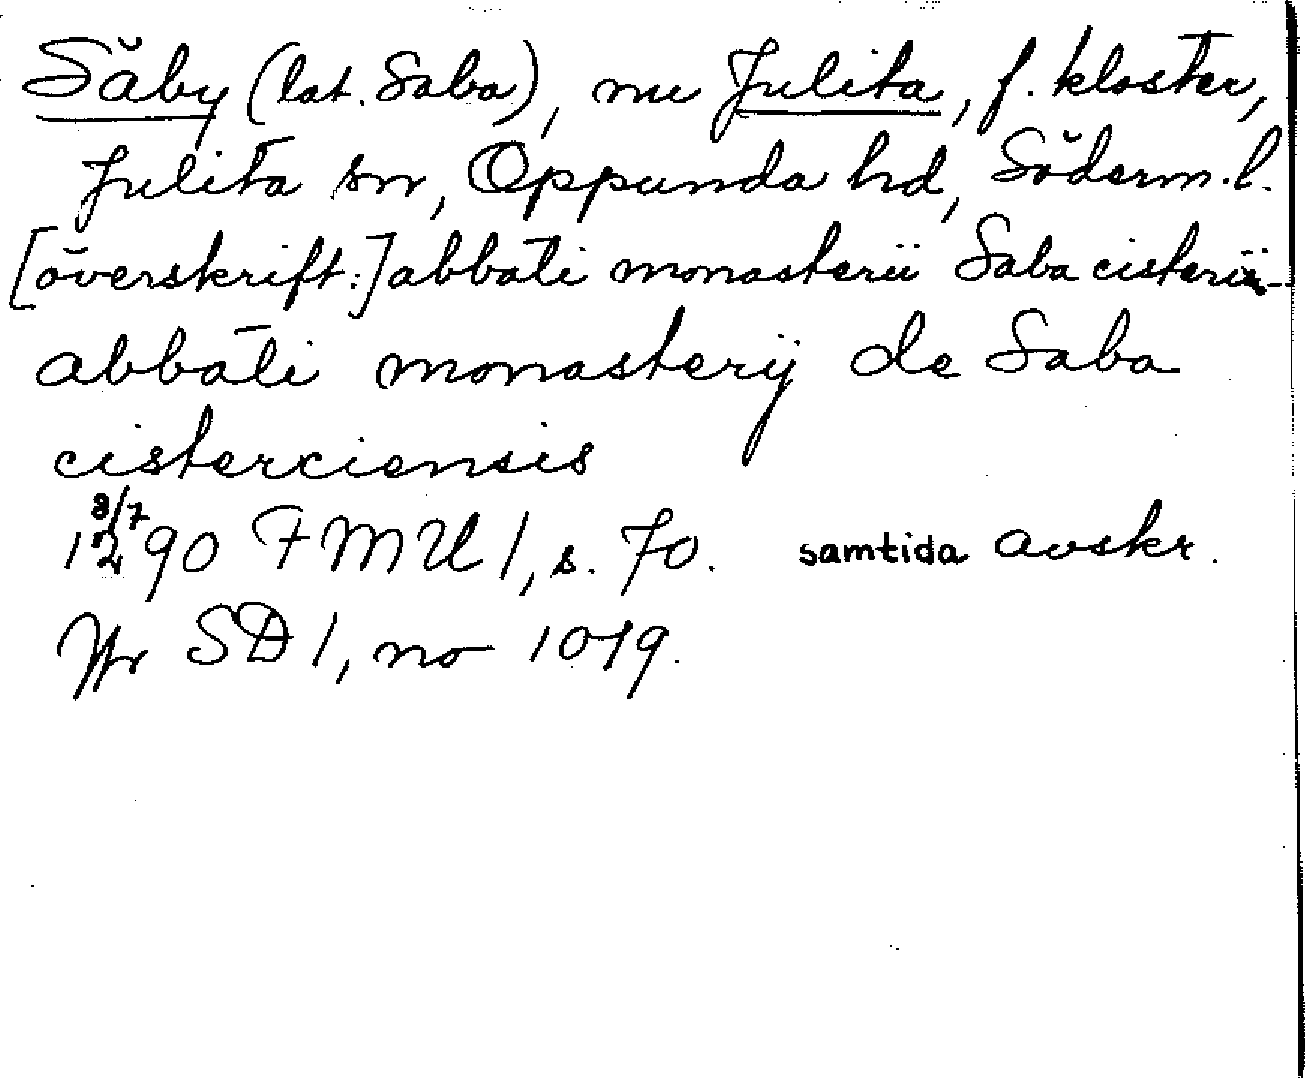 Säby (lat. Saba), nu Julita, f. kloster,
Julita sn, Oppunda hd, Söderm.l.
[överskrift:] abbati monasterii Saba cisterii
abbati monasterij de Saba
cisterciensis
8/7 1290 FMU 1, s. 70. samtida avskr.
Jfr SD 1, no 1019.